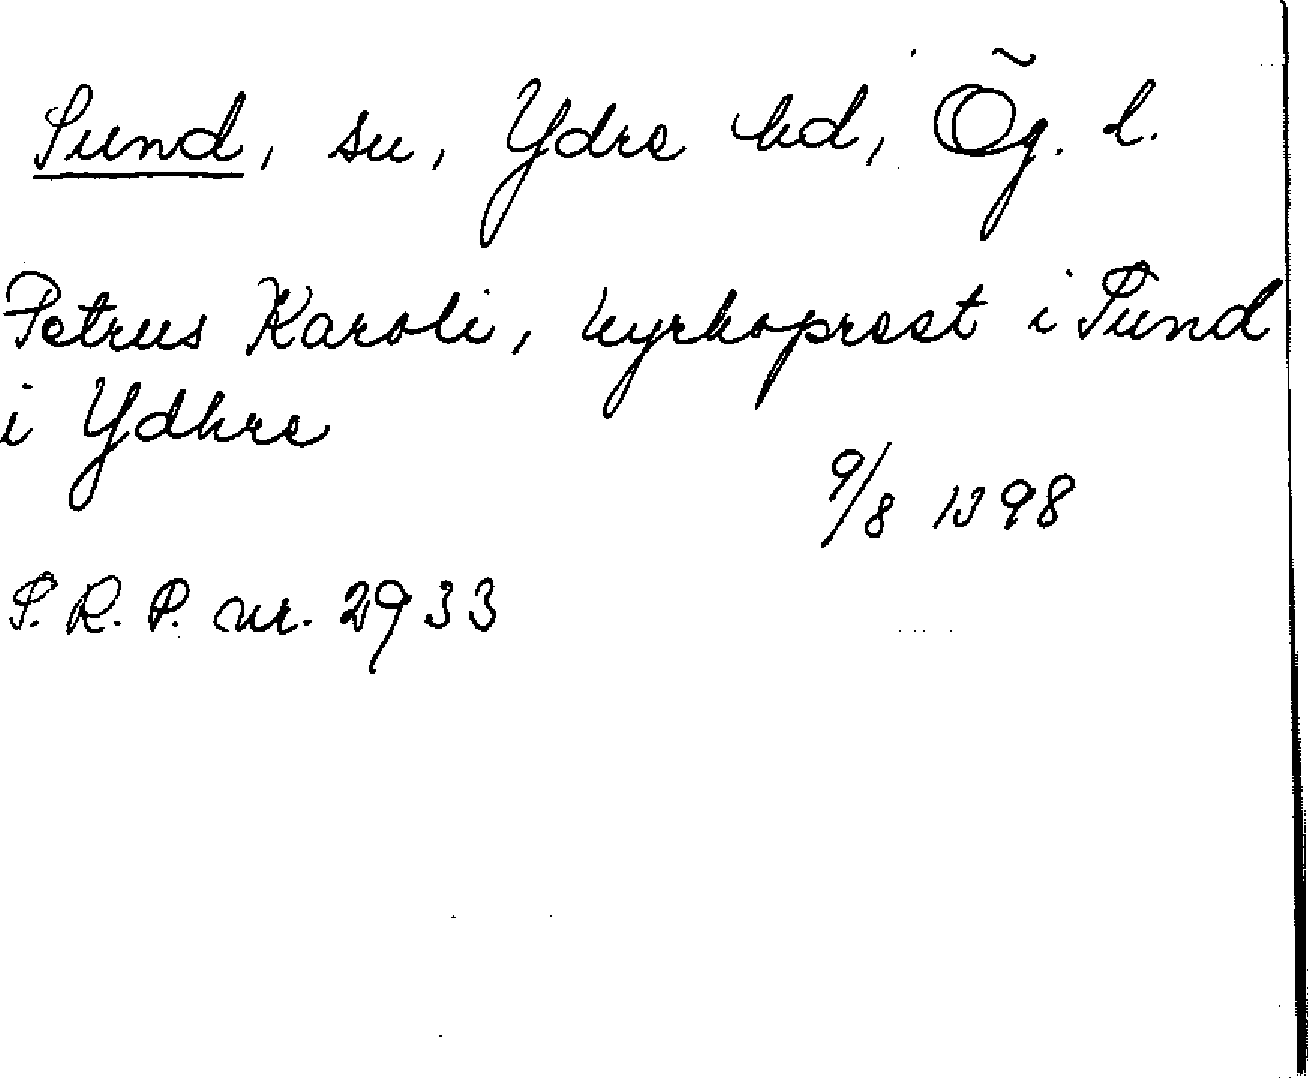 Sund, su, Ydre hd, Ög. l.
Petrus Karoli, kyrkoprest i Sund
i Ydhre
9/8 1398
S.R.P. nr. 2933